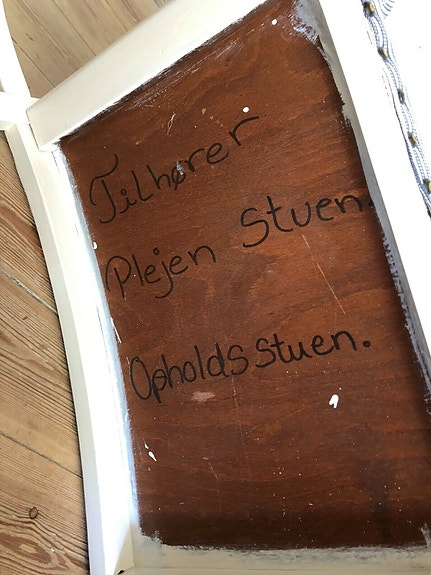 Tilhører
Plejen Stuen.
Opholdsstuen.